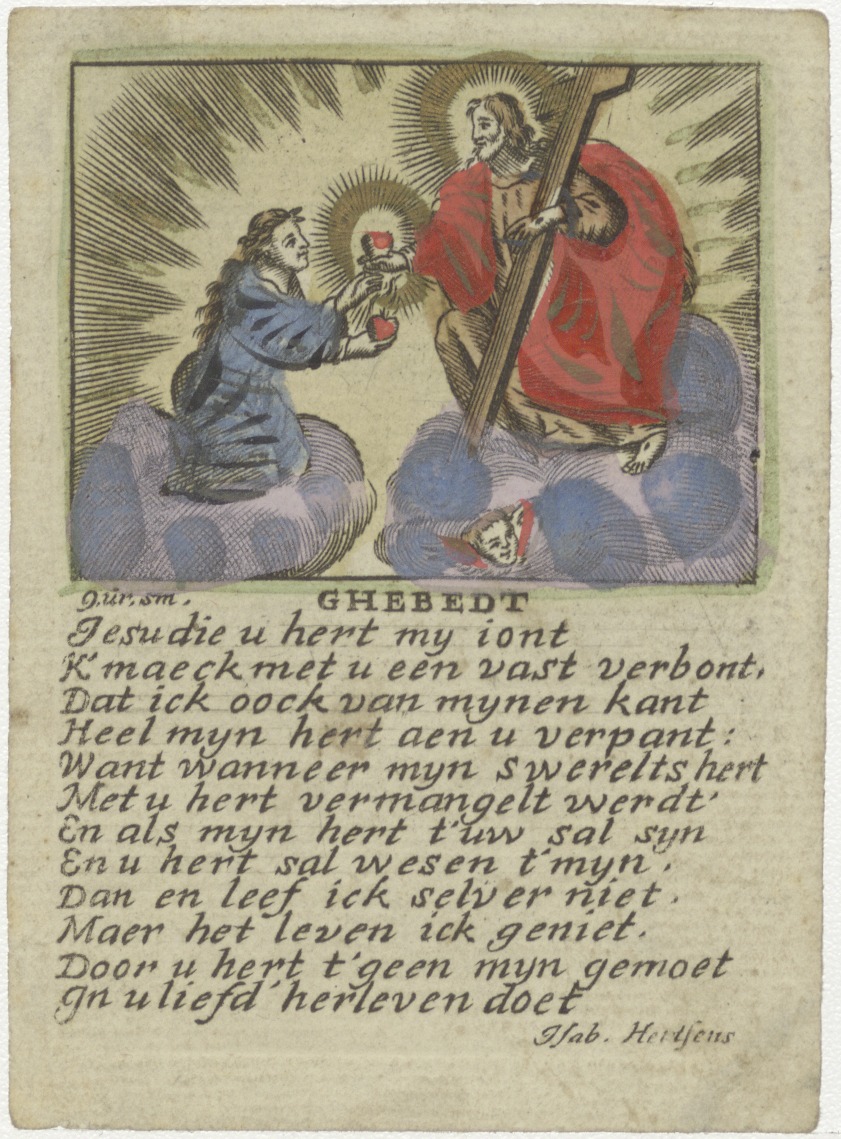 GHEBEDT
Jesu die u hert my iont
K'maeck met u een vast verbont,
Dat ick oock van mynen kant
Heel myn hert aen u verpant:
Want wanneer myn swerelts hert
Met u hert vermangelt werdt'
En als myn hert t'uw sal syn
En u hert sal wesen t'myn.
Dan en leef ick selver niet.
Maer het leven ick geniet.
Door u hert t'geen myn gemoet
Jn u liefd' herleven doet
Jsab. Hertsens